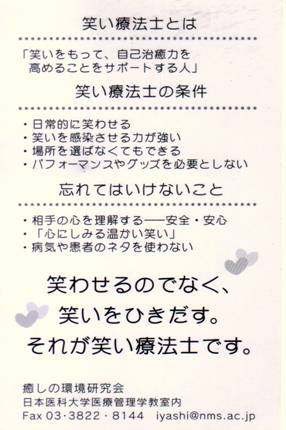 笑い療法士とは
「笑いをもって、自己治癒力を
高めることをサポートする人」
笑い療法士の条件
・日常的に笑わせる
・笑いを感染させる力が強い
・場所を選ばなくてもできる
・パフォーマンスやグッズを必要としない
忘れてはいけないこと
・相手の心を理解する──安全・安心
・「心にしみる温かい笑い」
・病気や患者のネタを使わない
笑わせるのでなく、
笑いをひきだす。
それが笑い療法士です。
癒しの環境研究会
日本医科大学医療管理学教室内
Fax 03・3822・8144 iyashi@nms.ac.jp